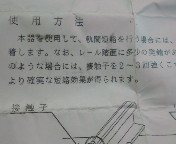 使用方法
本器を使用して、軌間短絡を行う場合には、
着します。なお、レール踏面に多少の突起が
のような場合には、接触子を2～3回
より確実な短絡効果が得られます。
接触子